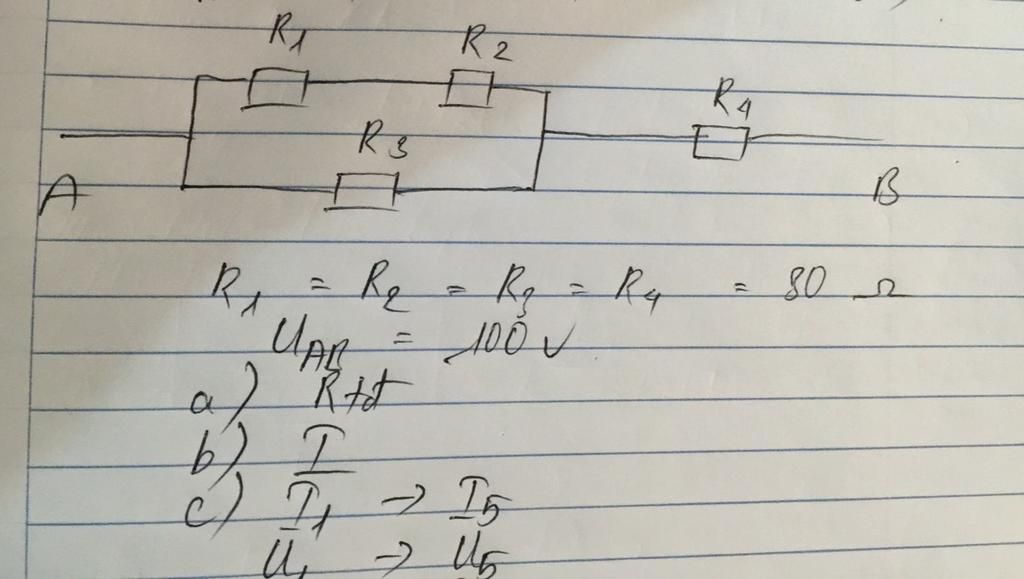 R1 R2
R3 R4
A B
R1 = R2 = R3 = R4 = 80 Ω
UAB = 100 V
a) Rtđ
b) I
c) I1 → I5
U1 → U5